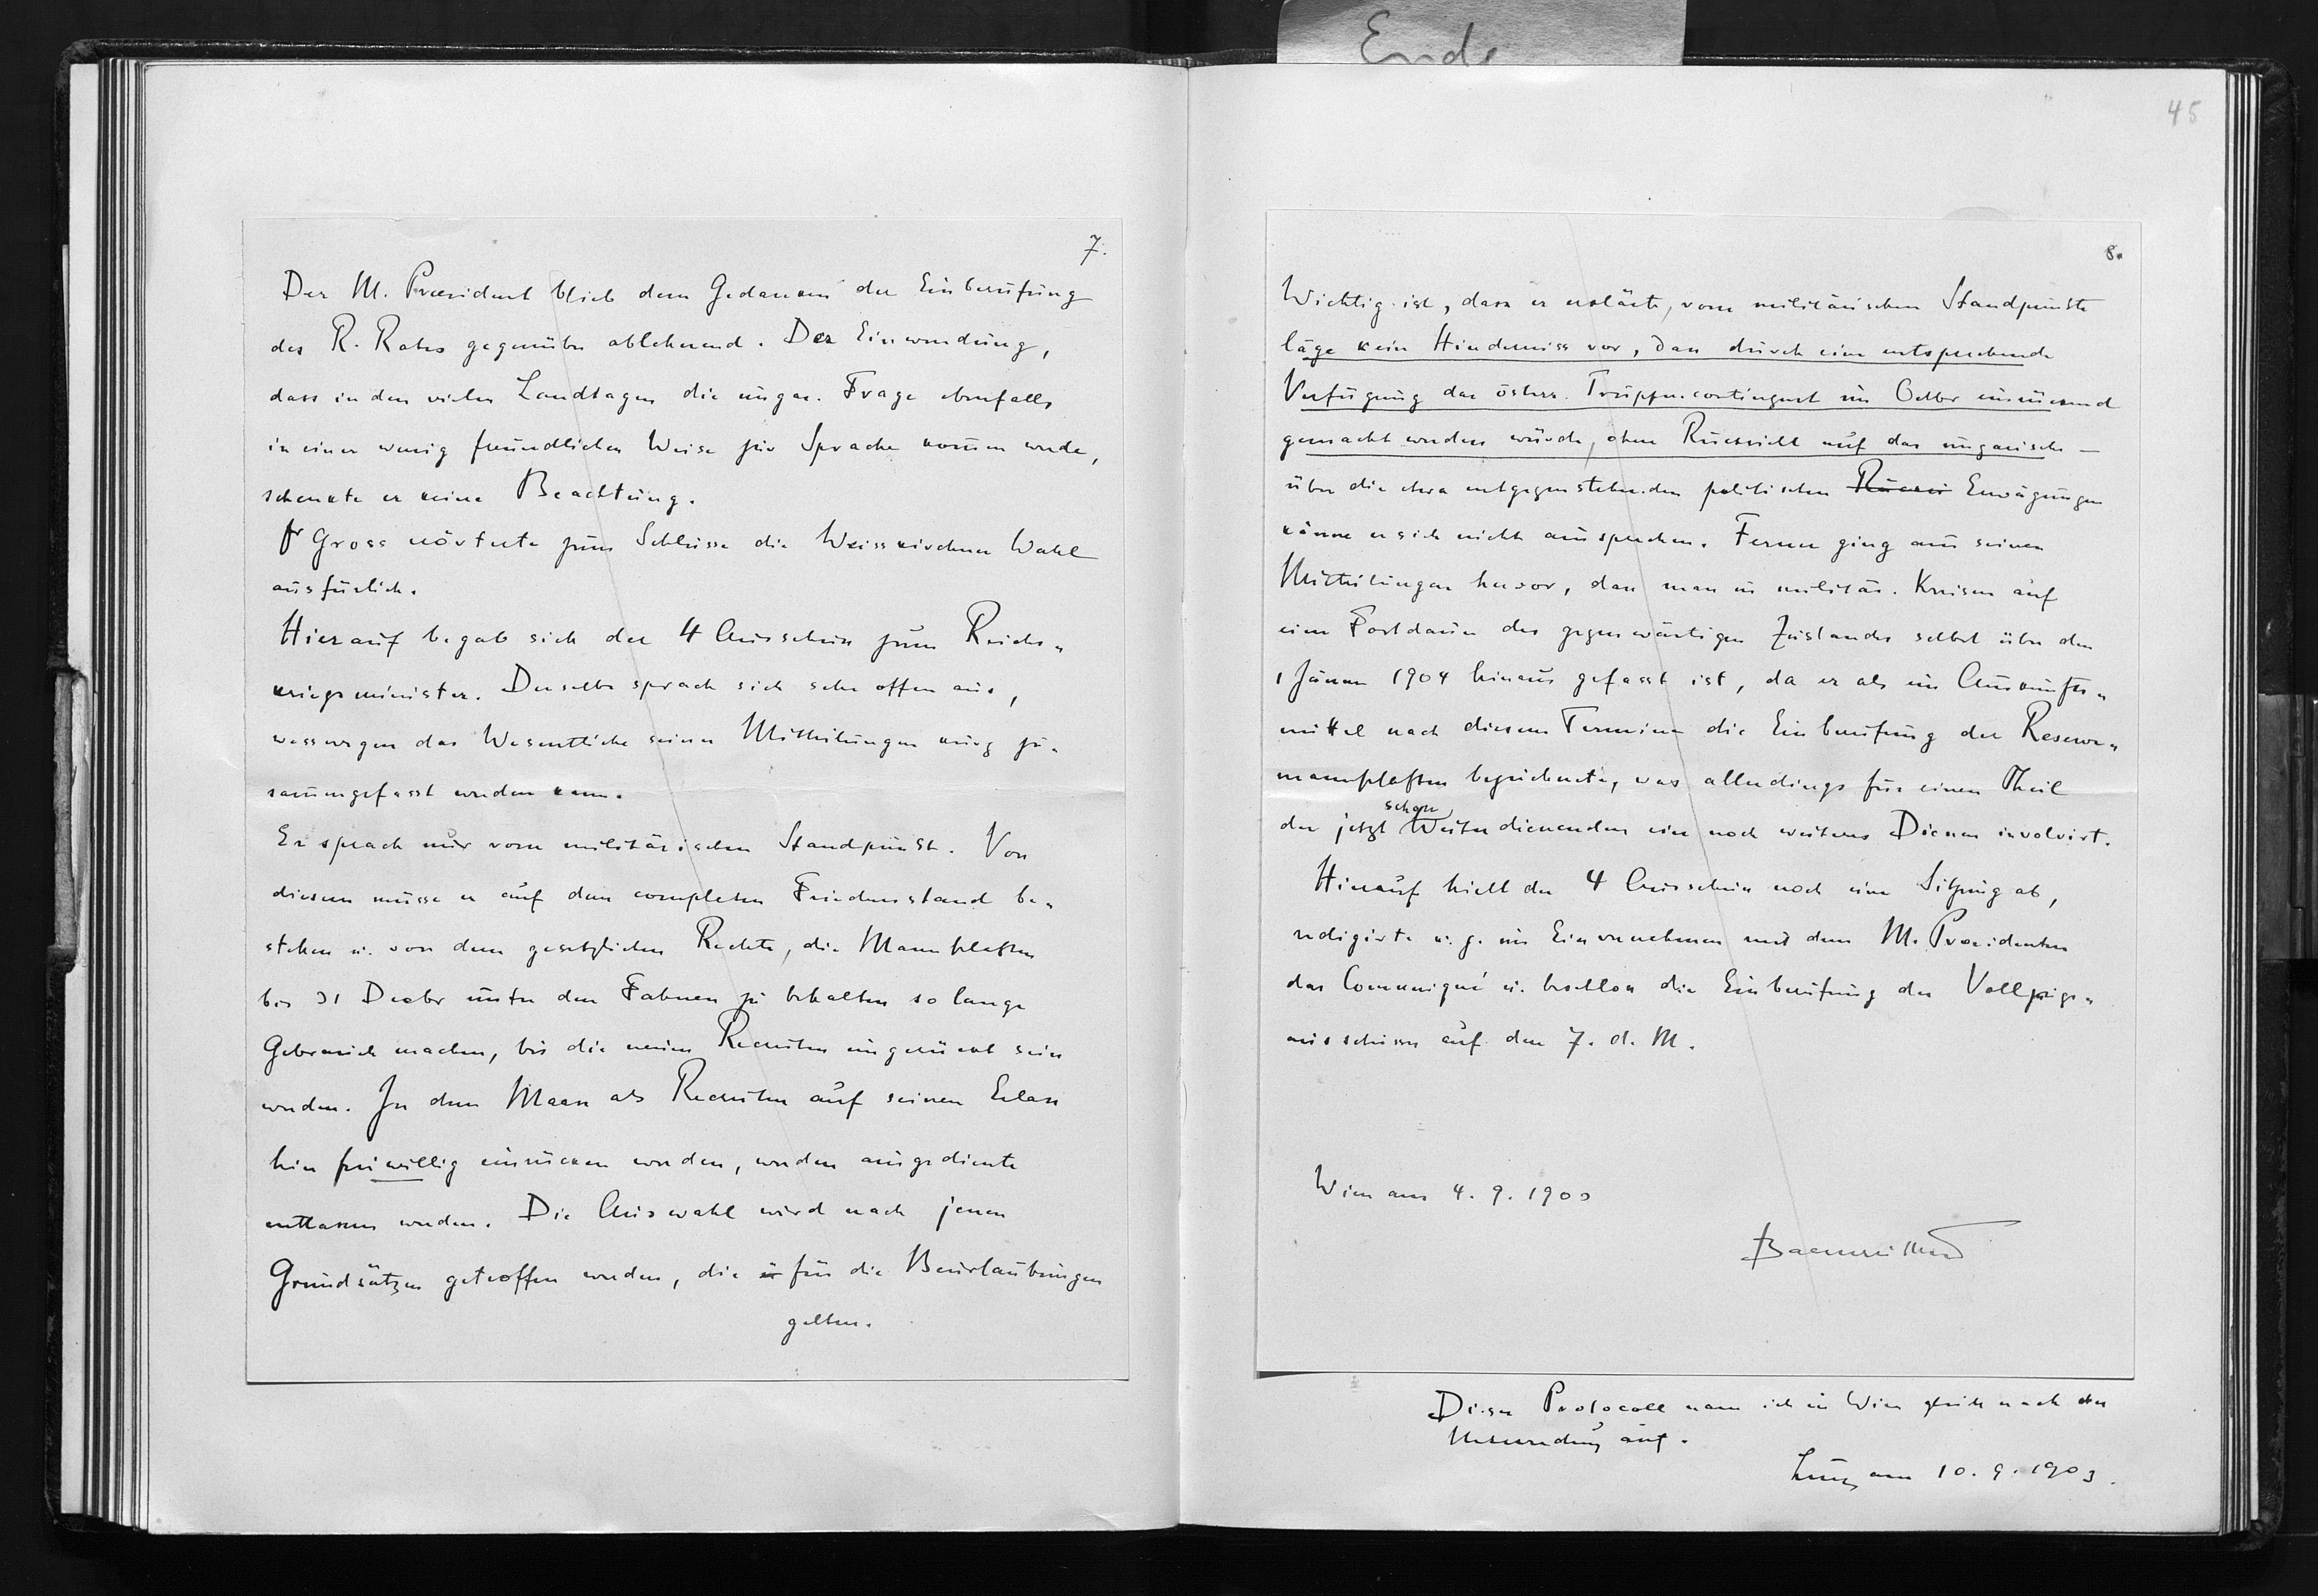 Ende
7.
Der M. Praesident blieb dem Gedanken der Einberufung
des R. Rates gegenüber ablehnend. Der Einwendung,
dass in den vielen Landtagen die ungar. Frage ebenfalls
in einer wenig freundlichen Weise zur Sprache kom̄en werde,
schenkte er keine Beachtung.
Gross erörterte zum Schlusse die Weisskirchner Wahl
ausfürlich.
Hierauf begab sich der 4 Ausschuss zum Reichs-
kriegsminister. Derselbe sprach sich sehr offen aus,
wesswegen das Wesentliche seiner Mittheilungen kurz zu-
sam̄engefasst werden kann.
Er sprach nur vom militärischen Standpunkt. Von
diesem müsse er auf dem completen Friedensstand be-
stehen u. von dem gesetzlichen Rechte, die Mannschaften
bis 31 Decbr unter den Fahnen zu behalten so lange
Gebrauch machen, bis die neuen Recruten eingerückt sein
werden. In dem Maass als Recruten auf seinen Erlass
hin freiwillig einrücken werden, werden ausgediente
entlassen werden. Die Auswahl wird nach jenen
Grundsätzen getroffen werden, die für die Beurlaubungen
gelten.
45
8.
Wichtig ist, dass er erklärte, vom militärischen Standpunkte
läge kein Hinderniss vor, dass durch eine entsprechende
Verfügung das österr. Truppencontingent im Octbr einrückend
gemacht werden würde, ohne Rücksicht auf das ungarische —
über die etwa entgegenstehenden politischen Rücksi Erwägungen
könne er sich nicht aussprechen. Ferner ging aus seinen
Mittheilungen hervor, dass man in militär. Kreisen auf
eine Fortdauer des gegenwärtigen Zustandes selbst über den
1 Jänner 1904 hinaus gefasst ist, da er als ein Auskunfts-
mittel nach diesem Termine die Einberufung der Reserve-
mannschaften bezeichnete, was allerdings für einen Theil
schon
der jetzt Weiterdienenden ein noch weiteres Dienen involvirt.
Hierauf hielt der 4 Ausschuss noch eine Sitzung ab,
redigirte u. z. im Einvernehmen mit dem M. Praesidenten
das Communiqué u. beschloss die Einberufung des Vollzugs-
ausschusses auf den 7. d. M.
Wien am 4. 9. 1903
Baernreither
Dieses Protocoll nam ich in Wien gleich nach der
Unterredung auf.
am 10. 9. 1903.